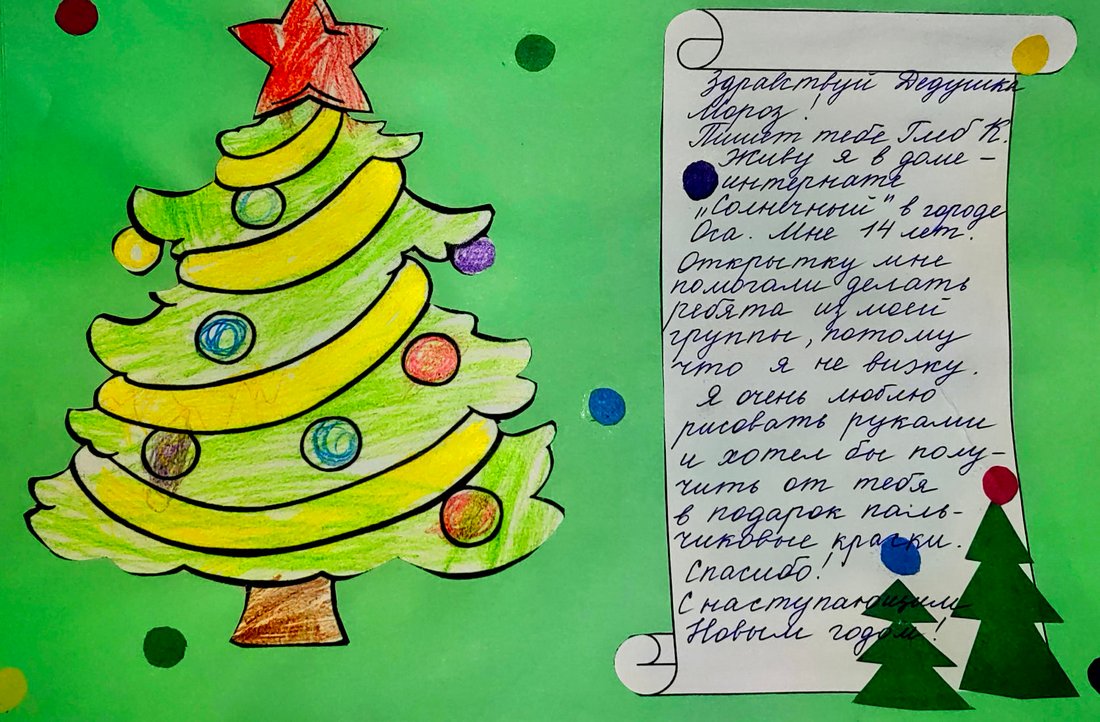 Здравствуй Дедушка
Мороз!
Пишет тебе Глеб К.
Живу я в доме-
интернате
„Солнечный" в городе
Оса. Мне 14 лет.
Открытку мне
помогали делать
ребята из моей
группы, потому
что я не вижу.
Я очень люблю
рисовать руками
и хотел бы полу-
чить от тебя
в подарок паль-
чиковые краски.
Спасибо!
С наступающим
Новым годом!